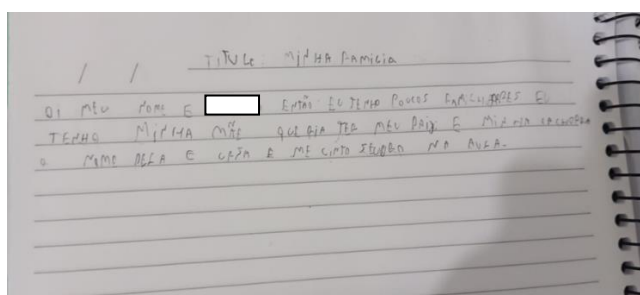 TITULE: MINHA FAMILIA
/ /
OI MEU NOME E ENTÃO EU TENHO POUCOS E
TENHO MINHA MÃE QUERIA TER MEU PAI E MINHA CACHORRA
O NOME DELA E E ME CINTO NA AULA.